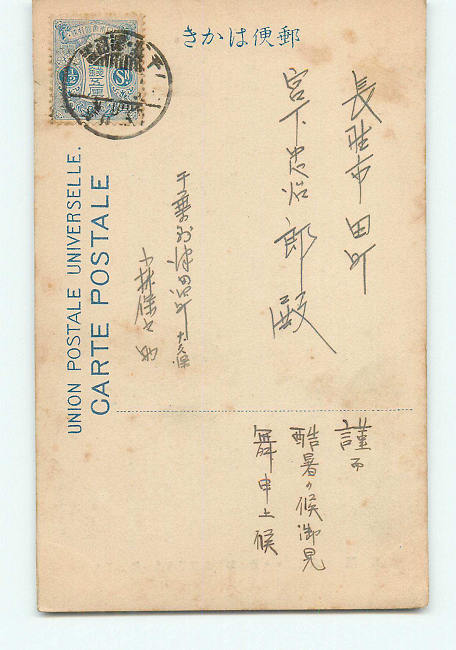 郵便はかき
長野市田町
宮下忠治郎殿
千葉縣津田沼町大久保
謹而
酷暑の候御見
舞申上候
UNION POSTALE UNIVERSELLE.
CARTE POSTALE